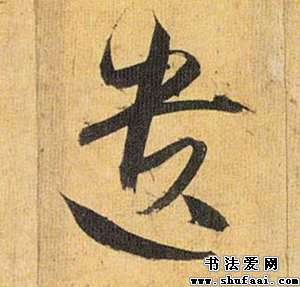 遗
书法爱网
www.shufaai.com